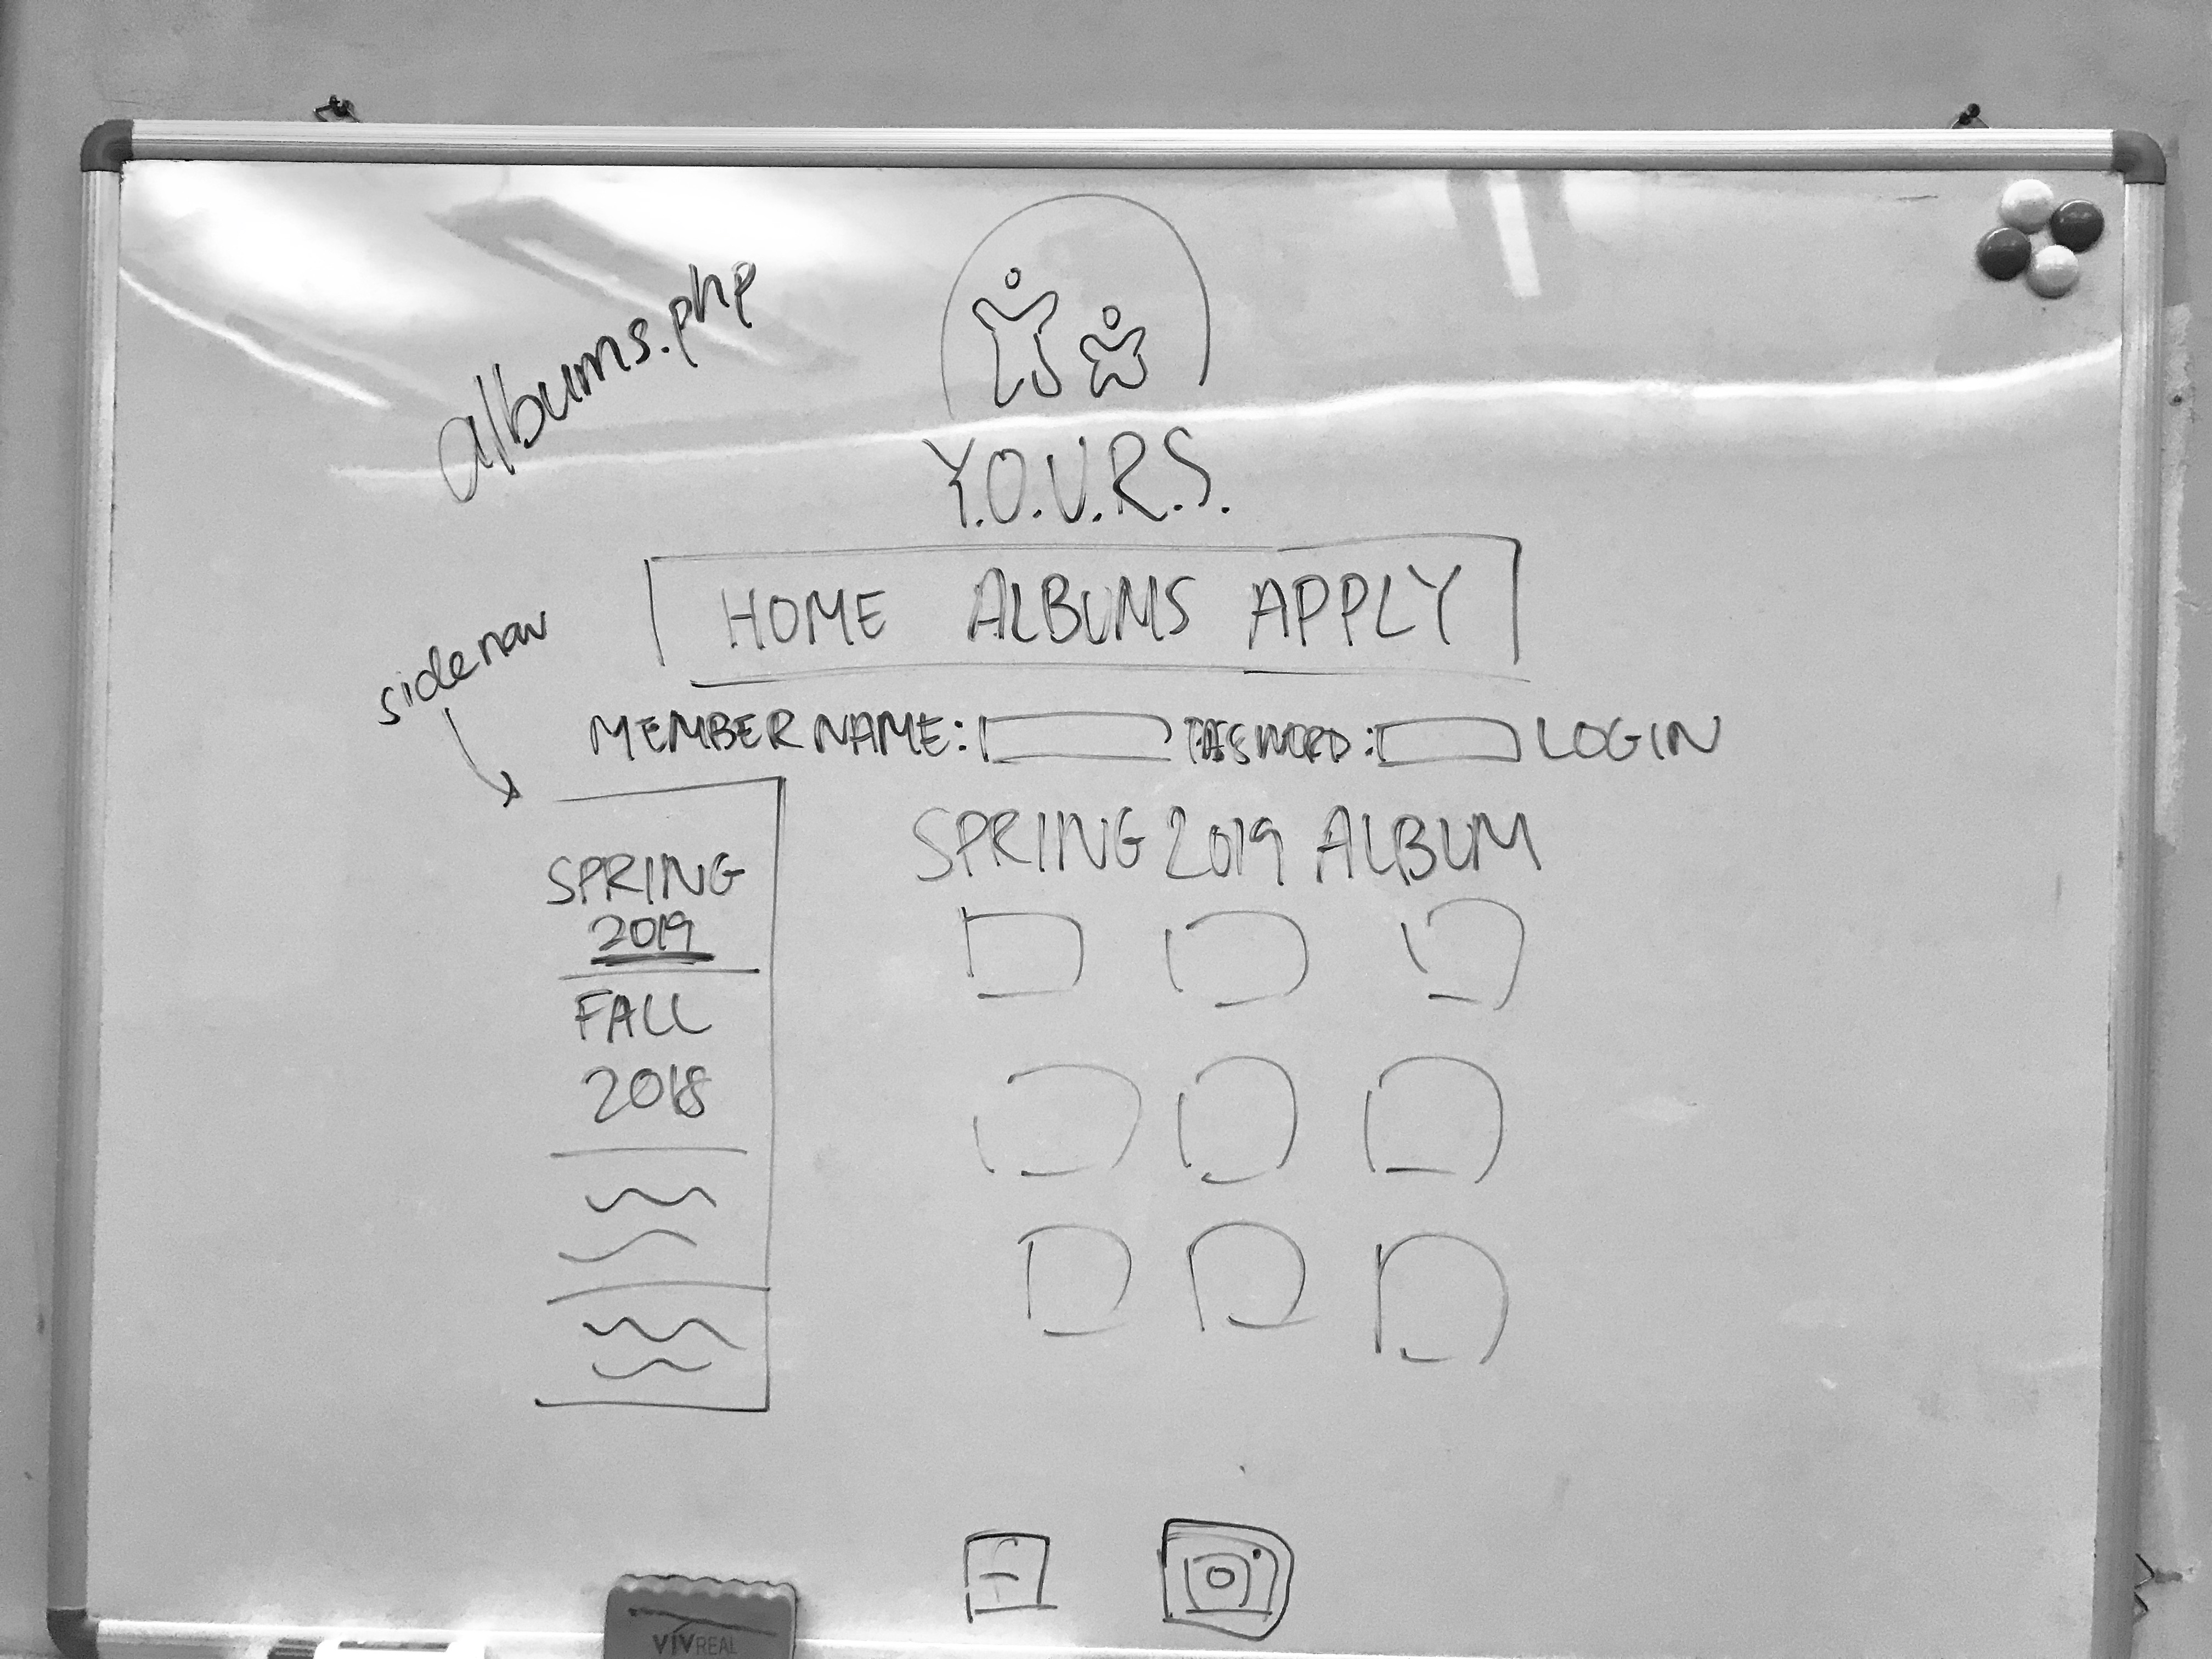 albums.php
Y.O.U.R.S.
HOME ALBUMS APPLY
sidenav
MEMBER NAME: PASSWORD: LOGIN
SPRING 2019 ALBUM
SPRING
2019
FALL
2018
VIVREAL